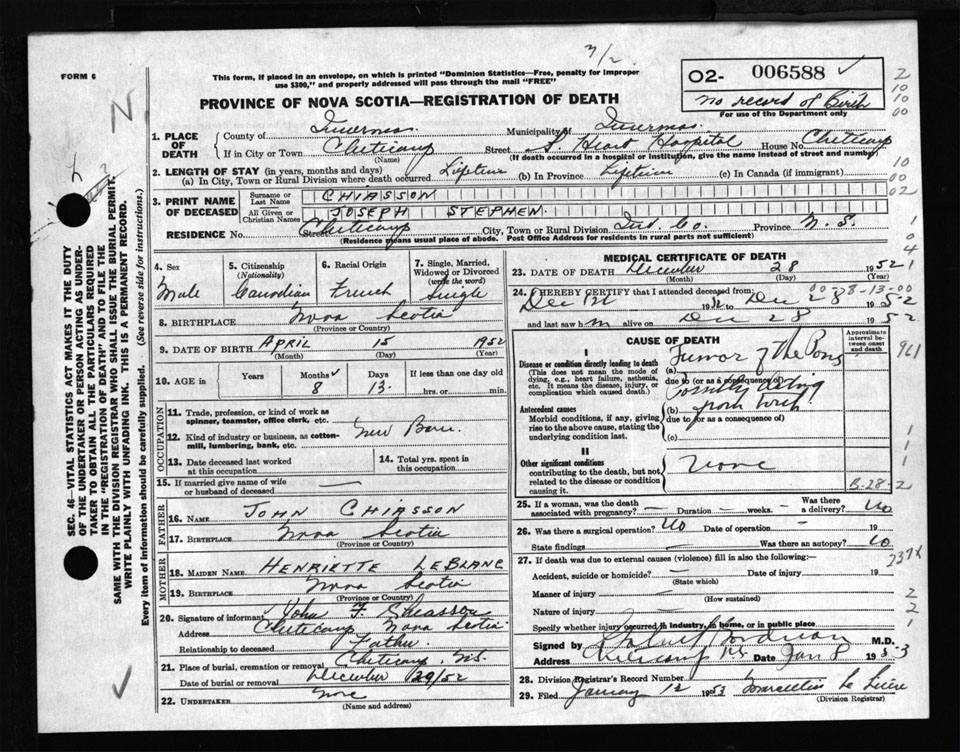 7/2
FORM 6
This form, if placed in an envelope, on which is printed "Dominion Statistics—Free, penalty for improper
use $300," and properly addressed will pass through the mail "FREE"
PROVINCE OF NOVA SCOTIA—REGISTRATION OF DEATH
O2- 006588
no record of Birth
For use of the Department only
1. PLACE OF DEATH
County of Inverness Municipality of Inverness
If in City or Town Cheticamp Street S. Heart Hospital House No. Cheticamp
(Name) (If death occurred in a hospital or institution, give the name instead of street and number)
2. LENGTH OF STAY (in years, months and days)
(a) In City, Town or Rural Division where death occurred Lifetime (b) In Province Lifetime (c) In Canada (if immigrant)
3. PRINT NAME OF DECEASED
Surname or Last Name CHIASSON
All Given or Christian Names JOSEPH STEPHEN
RESIDENCE No. Street Cheticamp City, Town or Rural Division Inv. Co. Province N. S.
(Residence means usual place of abode. Post Office Address for residents in rural parts not sufficient)
4. Sex Male
5. Citizenship (Nationality) Canadian
6. Racial Origin French
7. Single, Married, Widowed or Divorced (write the word) Single
8. BIRTHPLACE Nova Scotia
(Province or Country)
9. DATE OF BIRTH APRIL 15 1952
(Month) (Day) (Year)
10. AGE in Years Months Days If less than one day old
8 13 hrs. or min.
OCCUPATION
11. Trade, profession, or kind of work as
spinner, teamster, office clerk, etc. New Born
12. Kind of industry or business, as cotton-
mill, lumbering, bank, etc.
13. Date deceased last worked
at this occupation
14. Total yrs. spent in
this occupation
15. If married give name of wife
or husband of deceased
FATHER
16. NAME JOHN CHIASSON
17. BIRTHPLACE Nova Scotia
(Province or Country)
MOTHER
18. MAIDEN NAME HENRIETTE LEBLANC
19. BIRTHPLACE Nova Scotia
(Province or Country)
20. Signature of informant John
Address Cheticamp Nova Scotia
Relationship to deceased Father
21. Place of burial, cremation or removal Cheticamp, N.S.
Date of burial or removal December 29/52
22. UNDERTAKER None
(Name and address)
MEDICAL CERTIFICATE OF DEATH
23. DATE OF DEATH December 28 1952
(Month) (Day) (Year)
24. I HEREBY CERTIFY that I attended deceased from:
Dec to Dec 28 1952
and last saw him alive on Dec 28 1952
CAUSE OF DEATH
Approximate interval between onset and death
I
Disease or condition directly leading to death
(This does not mean the mode of
dying, e.g., heart failure, asthenia,
etc. It means the disease, injury, or
complication which caused death.)
(a) Tumor of the Pons
due to (or as a consequence of)
Antecedent causes
Morbid conditions, if any, giving
rise to the above cause, stating the
underlying condition last.
Possibly
(b) from birth
due to (or as a consequence of)
(c)
II
Other significant conditions
contributing to the death, but not
related to the disease or condition
causing it.
None
B-28-2
25. If a woman, was the death
associated with pregnancy? Duration weeks. Was there
a delivery? No
26. Was there a surgical operation? No Date of operation 19
State findings Was there an autopsy? No
27. If death was due to external causes (violence) fill in also the following:—
Accident, suicide or homicide? Date of injury 19
(State which)
Manner of injury
(How sustained)
Nature of injury
Specify whether injury occurred in industry, in home, or in public place
Signed by M.D.
Address Cheticamp N.S. Date Jan 8 1953
28. Division Registrar's Record Number
29. Filed January 12 1953
(Division Registrar)
SEC. 46—VITAL STATISTICS ACT MAKES IT THE DUTY
OF THE UNDERTAKER OR PERSON ACTING AS UNDER-
TAKER TO OBTAIN ALL THE PARTICULARS REQUIRED
IN THE "REGISTRATION OF DEATH" AND TO FILE THE
SAME WITH THE DIVISION REGISTRAR WHO SHALL ISSUE THE BURIAL PERMIT.
WRITE PLAINLY WITH UNFADING INK. THIS IS A PERMANENT RECORD.
Every item of information should be carefully supplied. (See reverse side for instructions.)